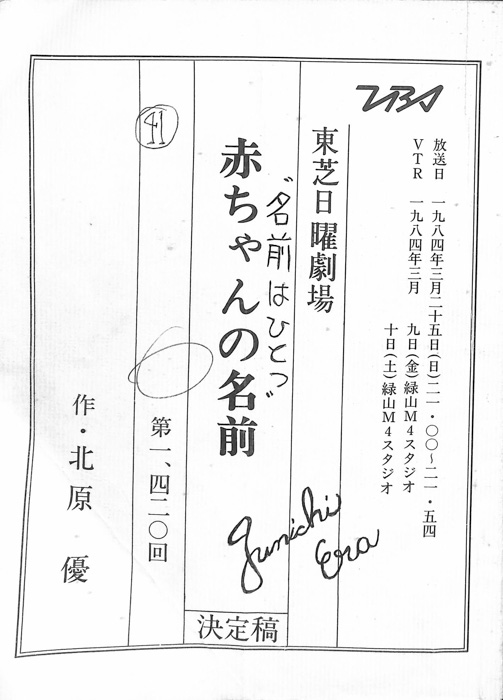 TBS
放送日 一九八四年三月二十五日(日)二一・〇〇~二一・五四
VTR 一九八四年三月 九日(金)緑山M4スタジオ
十日(土)緑山M4スタジオ
東芝日曜劇場
“名前はひとつ”
赤ちゃんの名前
第一、四二〇回
41
作・北原 優
決定稿
Junichi
Era